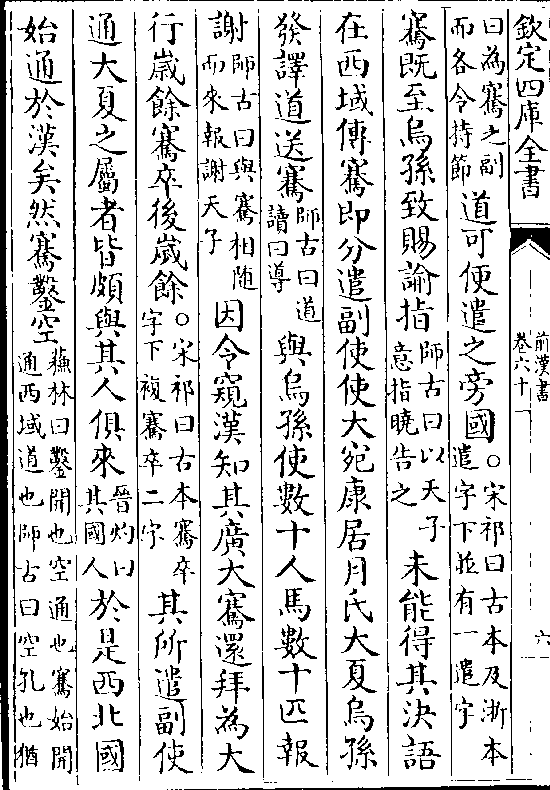 欽定四庫全書
前漢書
卷六十一
六
曰為騫之副
而各令持節
道可便遣之旁國
○宋祁曰古本及浙本
遣字下並有一遣字
騫既至烏孫致賜諭指
師古曰以天子
意指曉告之
未能得其決語
在西域傳騫即分遣副使使大宛康居月氏大夏烏孫
發譯道送騫
師古曰道
讀曰導
與烏孫使數十人馬數十匹報
謝
師古曰與騫相随
而來報謝天子
因令窺漢知其廣大騫還拜為大
行歲餘騫卒後歲餘
○宋祁曰古本騫卒
字下複騫卒二字
其所遣副使
通大夏之屬者皆頗與其人俱來
晉灼曰
其國人
於是西北國
始通於漢矣然騫鑿空
蘇林曰鑿開也空通也騫始開
通西域道也師古曰空孔也猶